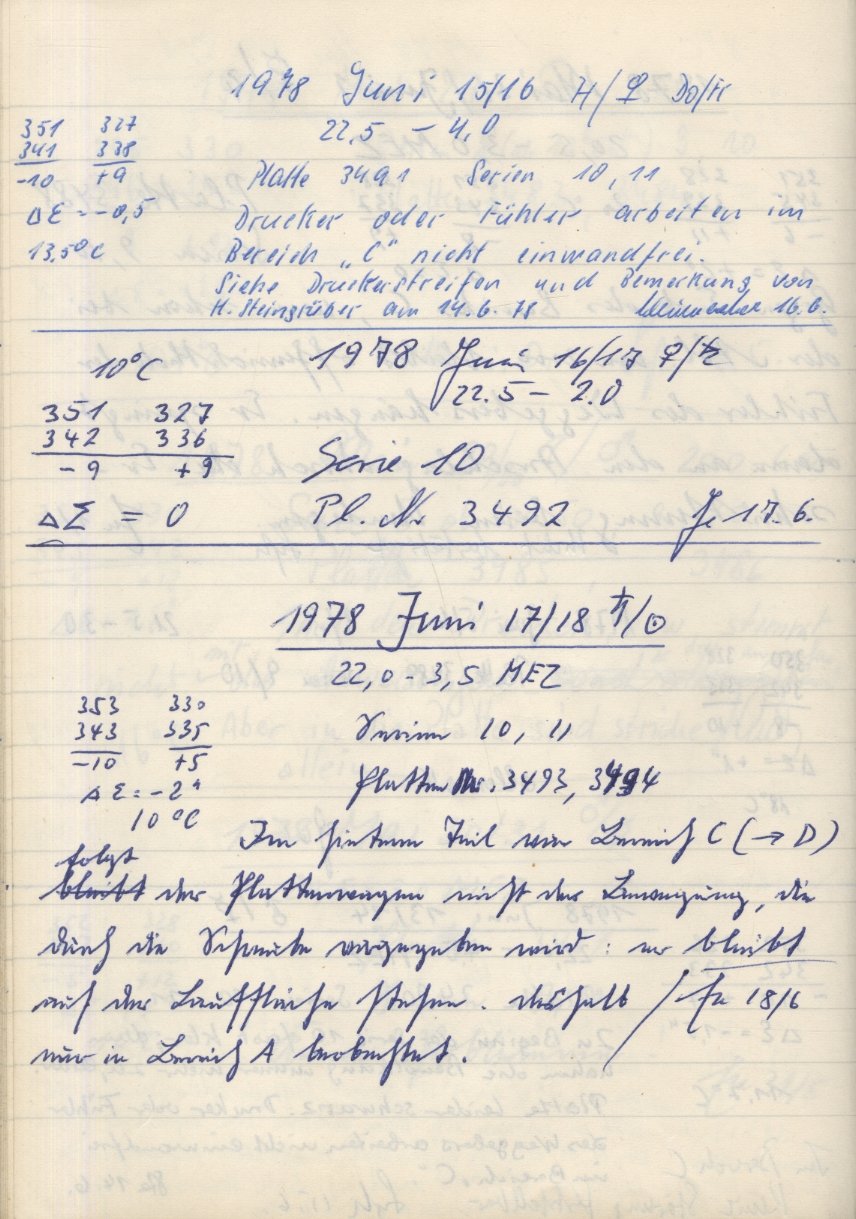 1978 Juni 15/16 ♃/♀ Do/Fr
22,5 – 4,0
351 327
341 338
-10 +9
ΔΣ = -0,5
13,5°C
Platte 3491 Serien 10, 11
Drucker oder Fühler arbeiten im
Bereich „C“ nicht einwandfrei.
Siehe Druckerstreifen und Bemerkung von
H. Steingrüber am 14.6.78 16.6.
10°C
1978 Juni 16/17 ♀/♄
22.5 – 2.0
351 327
342 336
-9 +9
ΔΣ = 0
Serie 10
Pl. Nr 3492 17.6.
1978 Juni 17/18 ♄/☉
22,0 - 3,5 MEZ
353 330
343 335
-10 +5
ΔΣ = -2"
10°C
Serien 10, 11
Platten Nr. 3493, 3494
Im hinteren Teil von Bereich C (→ D)
folgt
bleibt der Plattenwagen nicht der Bewegung, die
durch die Schraube vorgegeben wird: er bleibt
auf der Lauffläche stehen. deshalb / 18/6
nur in Bereich A beobachtet.